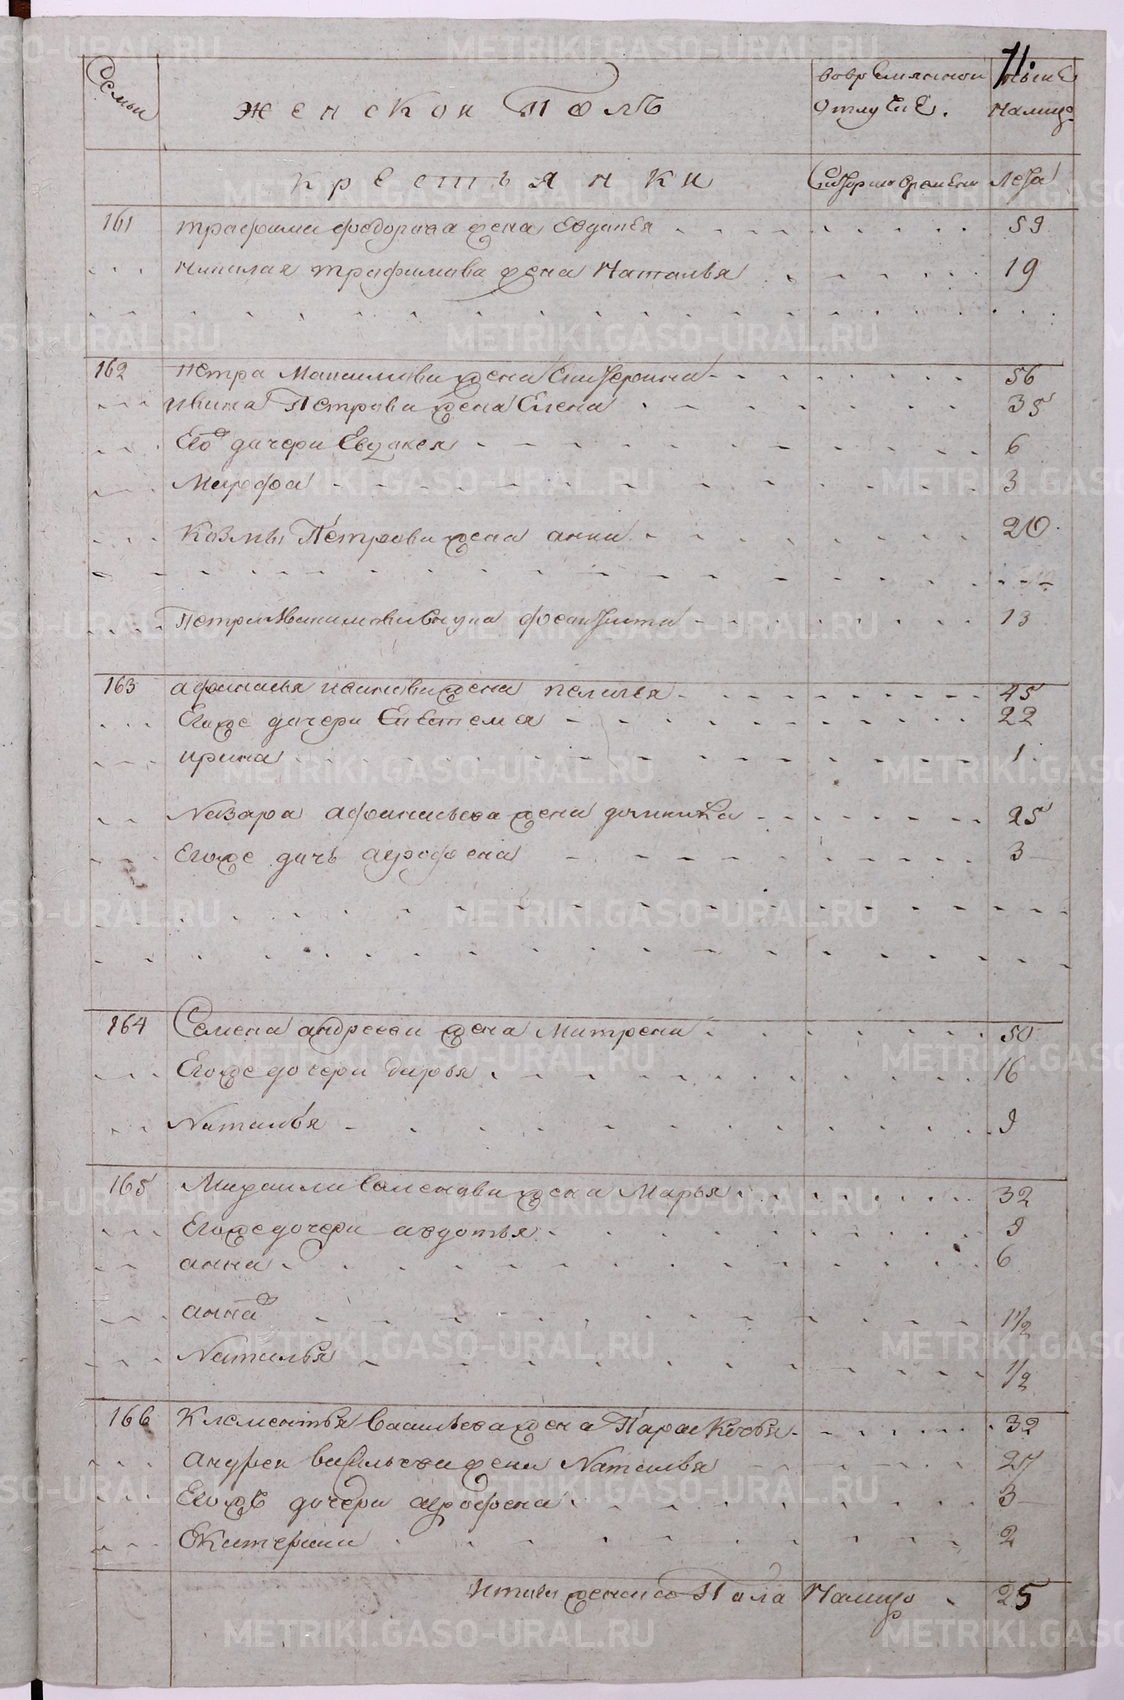 71.
Семьи
Женской Полъ
вовременной отлучке.
ныне на лицо
Крестьянки
Скоторого времени
Лета
161 Трафима федорова жена Евданья 59
Николая Трафимова жена Наталья 19
162 Петра Максимова жена Екатерина 56
Ивана Петрова жена Елена 35
Его дочери Евдакея 6
Марфа 3
Козмы Петрова жена анна 20
Петра внука 13
163 афанасья иванова жена пелагея 45
Егоже дочери 22
ирина 1
Назара афанасьева жена домника 25
Егоже дочь аграфена 3
164 Семена андреева жена Матрена 50
Егоже дочери дарья 16
Наталья 9
165 Михаила Семенова жена Марья 32
Егоже дочери авдотья 9
анна 6
анна 1 1/2
Наталья 1/2
166 Клементья Васильева жена Парасковья 32
андрея васильева жена Наталья 27
Егоже дочери аграфена 3
Екатерина 2
Итого женска Пола Налицо 25
METRIKI.GASO-URAL.RU